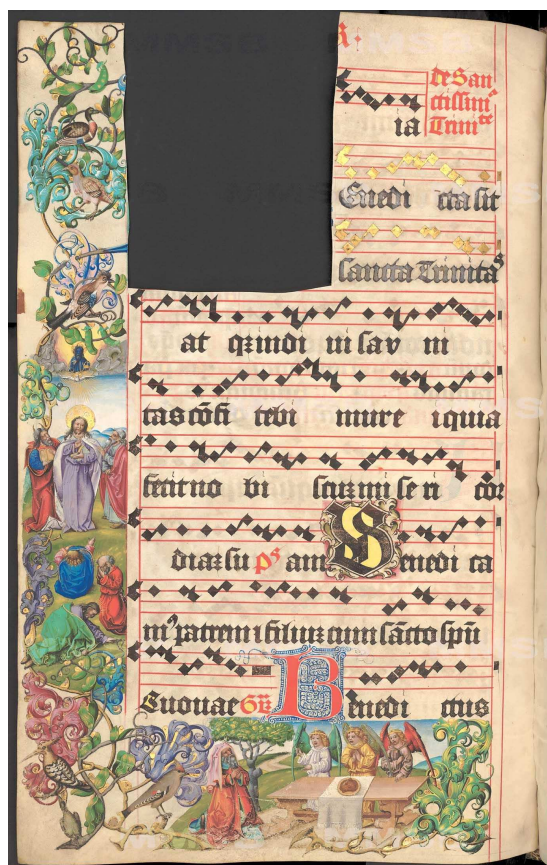 de San
ctissim͛
ia Triniͭͤ
Enedi cta sit
sancta Trinitaˢ
at qꝫ indi ui sa v ni
tas cōfi tebi mur e i quia
fecit no bi scuꝫ mi se ri cor
diaꝫ su pˢ am Benedi ca
mꝰ patrem ⁊ filiuꝫ cum sācto spū
Euouae Gr̄ Benedi ctus